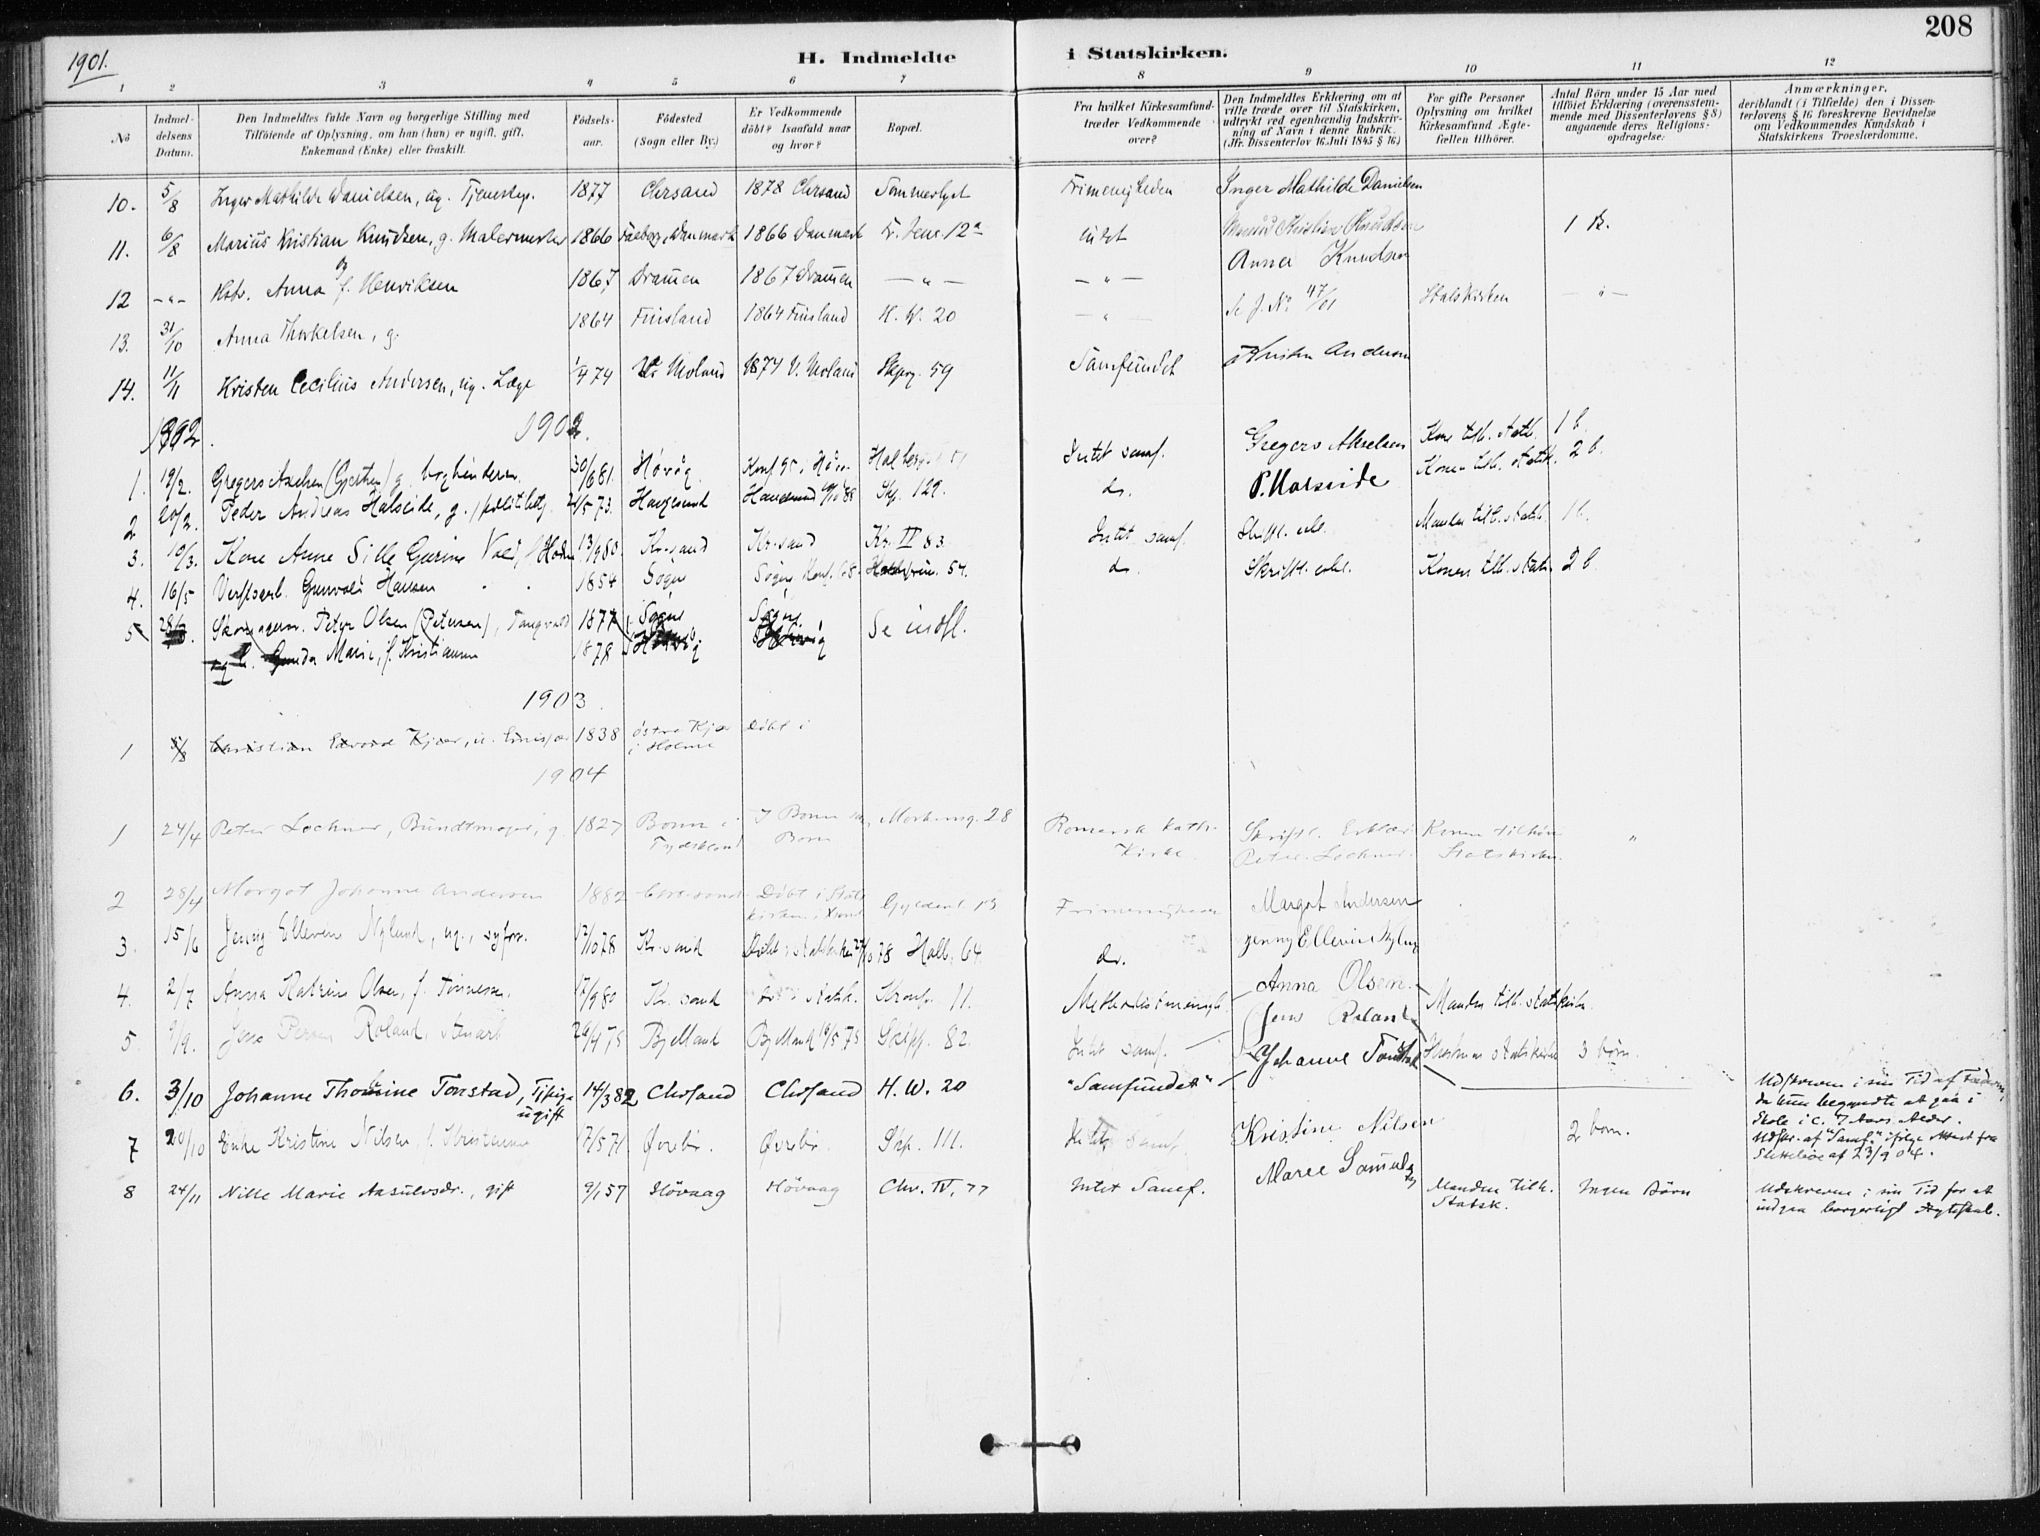 208
1901.
H. Indmeldte i Statskirken.
1 2 3 4 5 6 7 8 9 10 11 12
No
Indmeldelsens Datum.
Den Indmeldtes fulde Navn og borgerlige Stilling med Tilföiende af Oplysning, om han (hun) er ugift, gift, Enkemand (Enke) eller fraskilt.
Fødselsaar.
Fødested (Sogn eller By.)
Er Vedkommende döbt? Isaafald naar og hvor?
Bopæl.
Fra hvilket Kirkesamfund træder Vedkommende over?
Den Indmeldtes Erklæring om at ville træde over til Statskirken, udtrykt ved egenhændig Indskrivning af Navn i denne Rubrik. (Jfr. Dissenterlov 16 Juli 1845 § 16)
For gifte Personer Oplysning om hvilket Kirkesamfund Ægtefællen tilhörer.
Antal Börn under 15 Aar med tilföiet Erklæring (overensstemmende med Dissenterlovens § 8) angaaende deres Religionsopdragelse.
Anmærkninger, deriblandt (i Tilfælde) den i Dissenterlovens § 16 foreskrevne Bevidnelse om Vedkommendes Kundskab i Statskirkens Troeslærdomme.
10. 5/8 Inger Mathilde Danielsen, ug. Tjenestep. 1877 Chrsand 1878 Chrsand Frimenigheden Inger Mathilde Danielsen
11. 6/8 Marius Kristian Knudsen, g. Malermester 1866 Danmark 1866 Danmark 12a intet Marius Kristian Knudsen 1 B.
12 -"- og Hstr. Anna f. Henriksen 1867 Dramen 1867 Dramen -"- -"- Anna Knudsen
13. 31/10 Anna Thorkelsen, g. 1864 Finsland 1864 Finsland H. W. 20 -"- Se J. No 47/01 Statskirken -"-
14. 11/11 Kristen Cecilius Andersen, ug. Læge 1/4 74 V. Moland 1874 V. Moland Skprg. 59 Samfundet Kristen Andersen
1902. 1902.
1. 19/2. Gregers Axelsen g. 30/6 81. Høvåg Intet samf. Gregers Akselsen Kone tilh. Statk. 1 b.
2 20/2. Peder Andreas Halseide, g. 2/5 73. Haugesund Haugesund Skp. 129. do. P. Halseide Konen tilh. statsk. 2 b.
3. 10/3. Kone Anne Sille 13/9 80. Kr.sand Kr.sand Kr. IV 83. Intet samf. Skriftl. erkl. Manden tilh. statsk. 1 b.
4. 16/5 Verftsarb. Gunvald Hansen 1854 Søgne Søgne 54. do. Skriftl. erkl. Konen tilh. statsk. 2 b
5 28/ Peter Olsen (Petersen), Tangvald 1877 Søgne Søgne Se indfl.
og h. Gunda Marie, f. Kristiansen 1878
1903.
1 5/8 Christian Edvard Kjær, 1838 østre Kjær i Holme Døbt i
1904
1 24/4 Peter Lochner, Bundtmager, g. 1827 Bonn i Tydskland I Bonn Marknsg. 28 Romersk kath. Kirke. Skriftl. Erklær. Peter Lochner. Konen tilhører Statskirken. "
2 28/4 Margot Johanne Andersen 1882 Døbt i Stats kirken i Krsand Gyldenl. 15 Frimenigheden Margot Andersen
3. 15/6 Jenny Ellevine Nylund, ug., syfor. 12/10 78 Kr.sand Døbt i statskirken 78 Holb. 64. do. Jenny Ellevine Nylund
4. 2/7 Anna Katrine Olsen, f. Tønnesen. 17/9 80 Kr. sand do i statsk. Kronp. 11. Methodistmenigh. Anna Olsen. Manden tilh. statskirken.
5. 9/9. Jens Roland, 26/4 75 Bjelland Bjelland 16/5 75 Skipp. 82. Intet samf. Jens Roland Hustruen statskirken 3 børn.
6. 3/10 Johanne Thomine Tonstad, Tjpige ugift 14/3 82 Chrsand Chrsand H. W. 20 "Samfundet" Johanne Tonstad
Udskreven i sin Tid af Faderen, da hun begyndte at gaa i Skole i c. 7 Aars Alder. Udskr. af "Samf." ifølge Attest fra af 23/9 04.
7 20/10 Enke Kristine Nilsen, f. Kristensen 17/5 71 Øvrebø. Øvrebø. Skp. 111. Intet samf. Kristine Nilsen 2 børn.
8 24/11 Nille Marie Aasulvsdr., gift 9/1 57 Høvaag Høvaag Chr. IV, 77 Intet Samf. Marie Samuelsen Manden tilh. Statsk. Ingen Børn
Udskreven i sin Tid for at indgaa borgerligt Ægteskab.